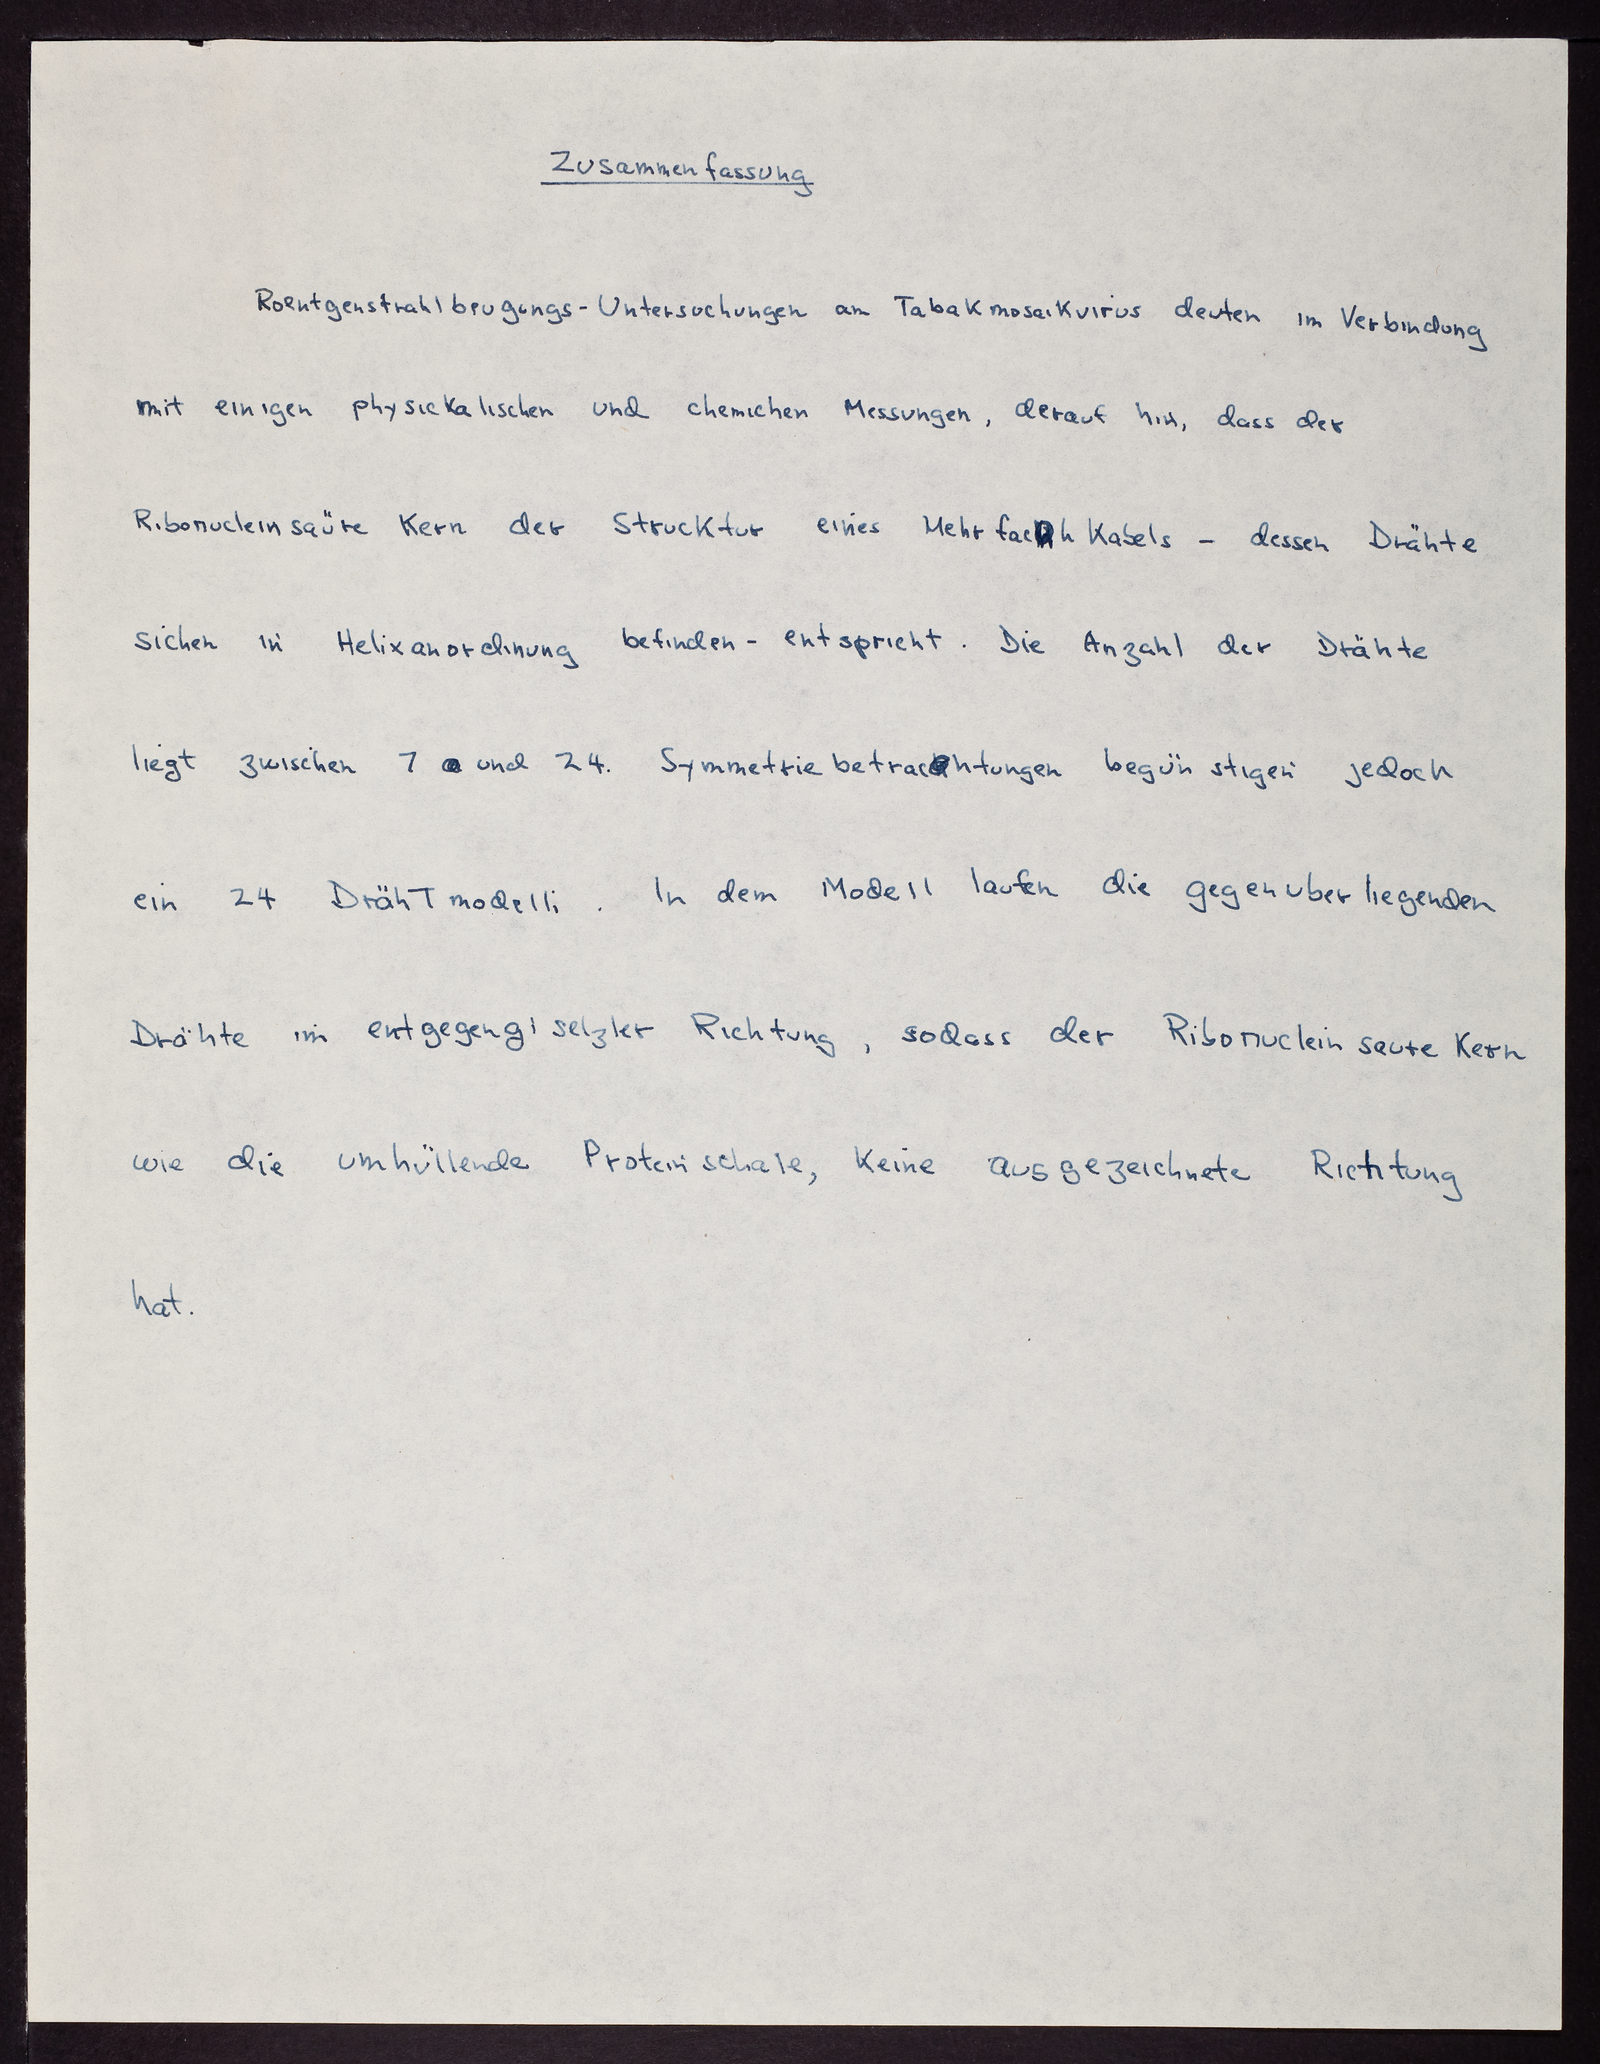 Zusammenfassung
Roentgenstrahlbeugungs-Untersuchungen am Tabakmosaikvirus deuten im Verbindung
mit einigen physickalischen und chemichen Messungen, derauf hin, dass der
Ribonucleinsaüre Kern der Strucktur eines Mehrfachkabels - dessen Drähte
sichen in Helixanordnung befinden - entspricht. Die Anzahl der Drähte
liegt zwischen 7 und 24. Symmetriebetrachtungen begünstigen jedoch
ein 24 DrähTmodelli. In dem Modell laufen die gegenuberliegenden
Drähte im entgegengisetzter Richtung, sodass der Ribonucleinsaure Kern
wie die umhüllende Proteinschale, keine ausgezeichnete Richtung
hat.